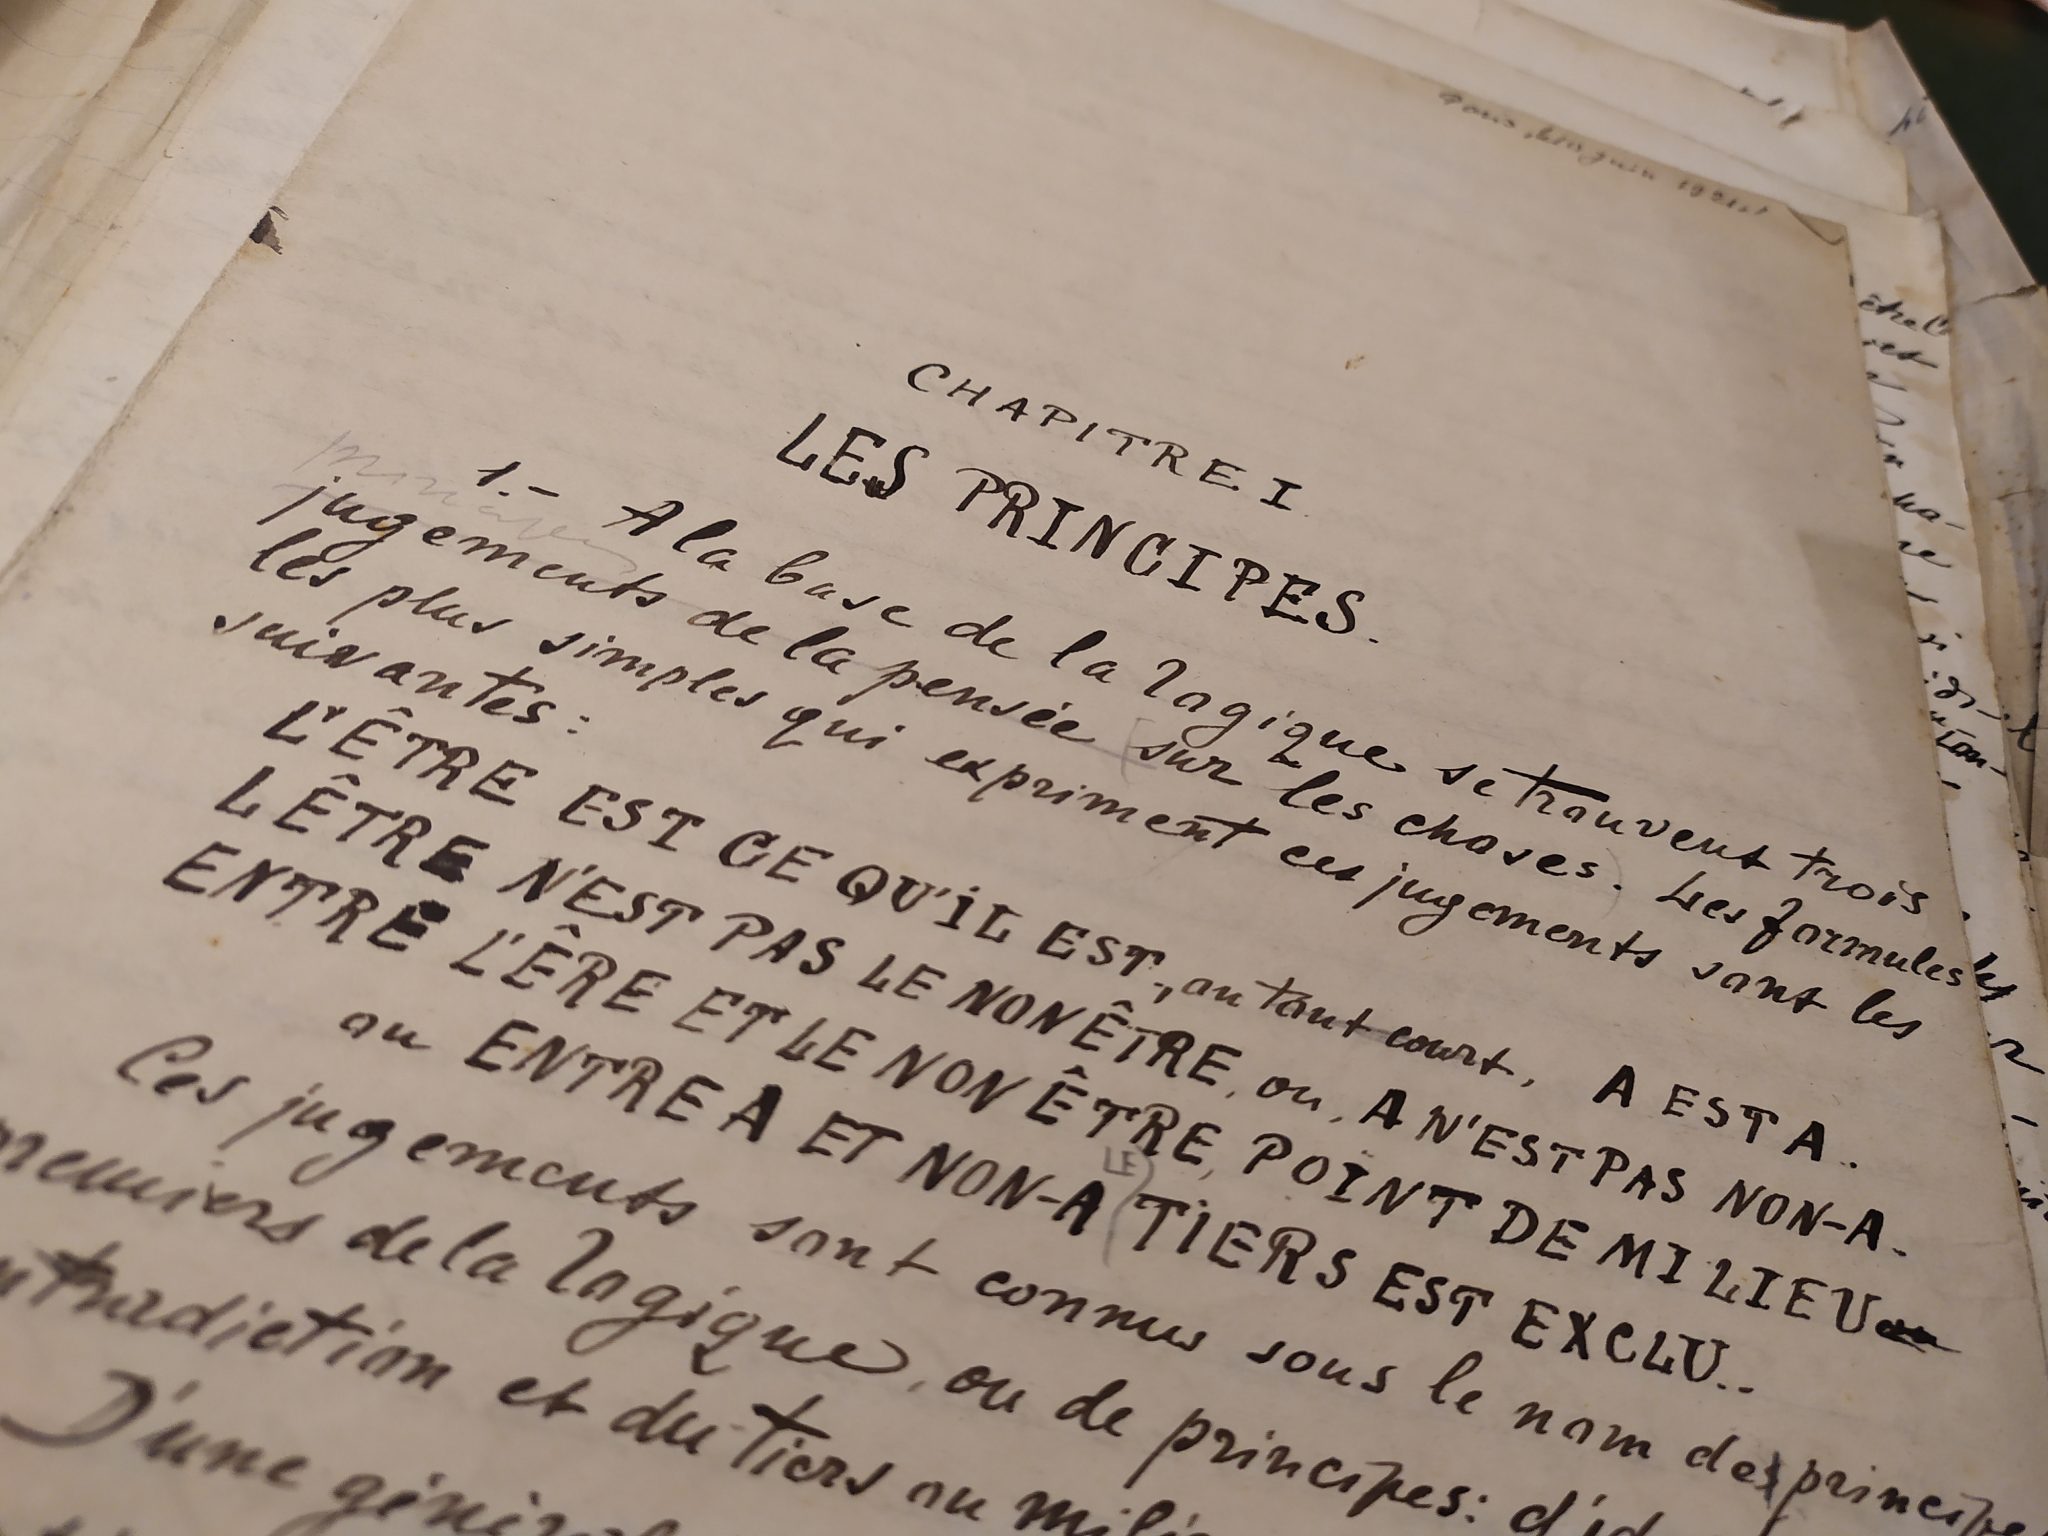 CHAPITRE I.
LES PRINCIPES.
1.- A la base de la logique se trouvent trois
jugements de la pensée sur les choses. Les formules les
les plus simples qui expriment ces jugements sont les
suivantes:
L'ÊTRE EST CE QU'IL EST, ou tout court, A EST A.
L ÊTRE N'EST PAS LE NON ÊTRE, ou, A N'EST PAS NON-A.
ENTRE L'ÊRE ET LE NON ÊTRE, POINT DE MILIEU
ou ENTRE A ET NON-A LE TIERS EST EXCLU..
Ces jugements sont connus sous le nom des principes
premiers de la logique, ou de principes: d'id
ntradiction et du tiers ou mili
D'une général